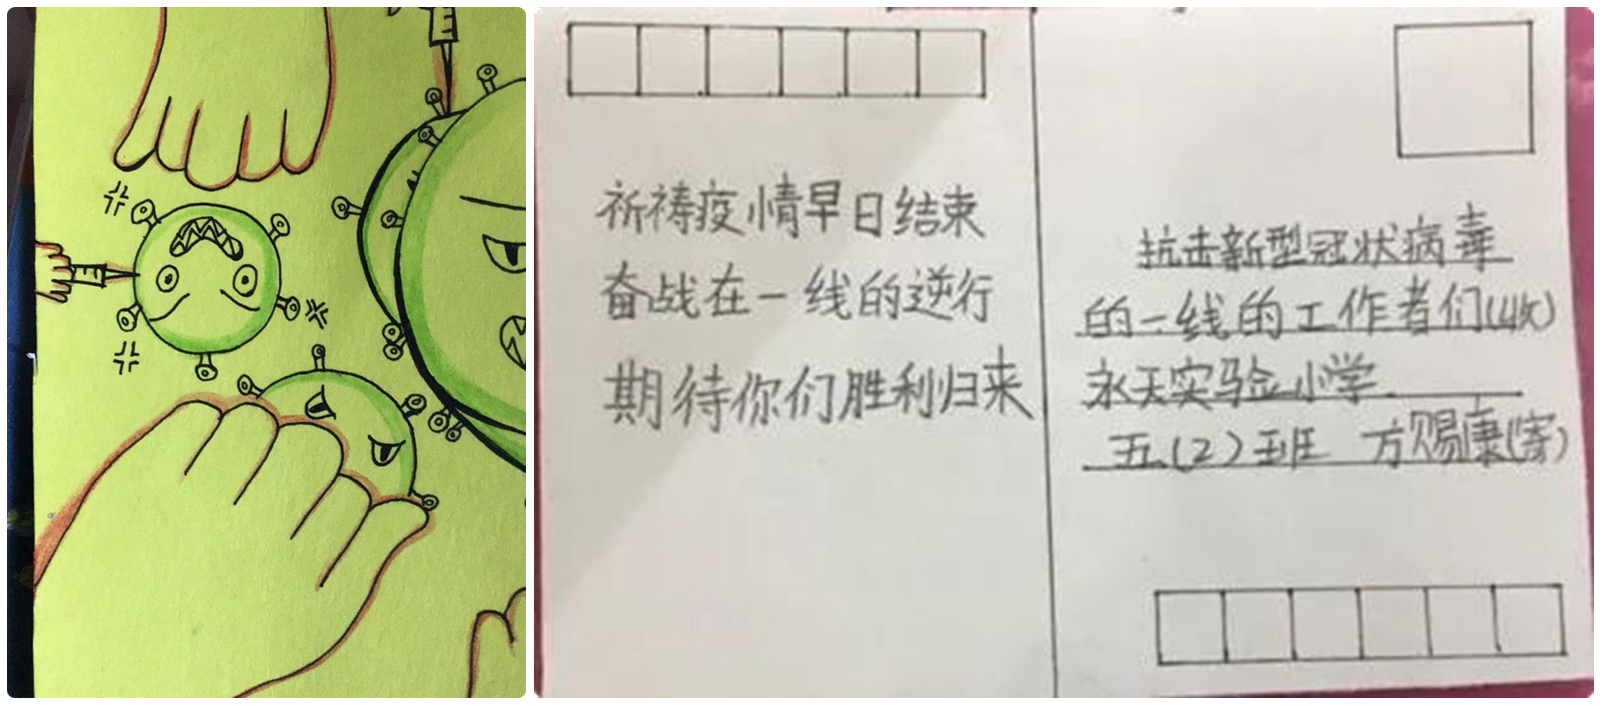 祈祷疫情早日结束
奋战在一线的逆行
期待你们胜利归来
抗击新型冠状病毒
的一线的工作者们(收)
永天实验小学
五(2)班 方赐康(寄)